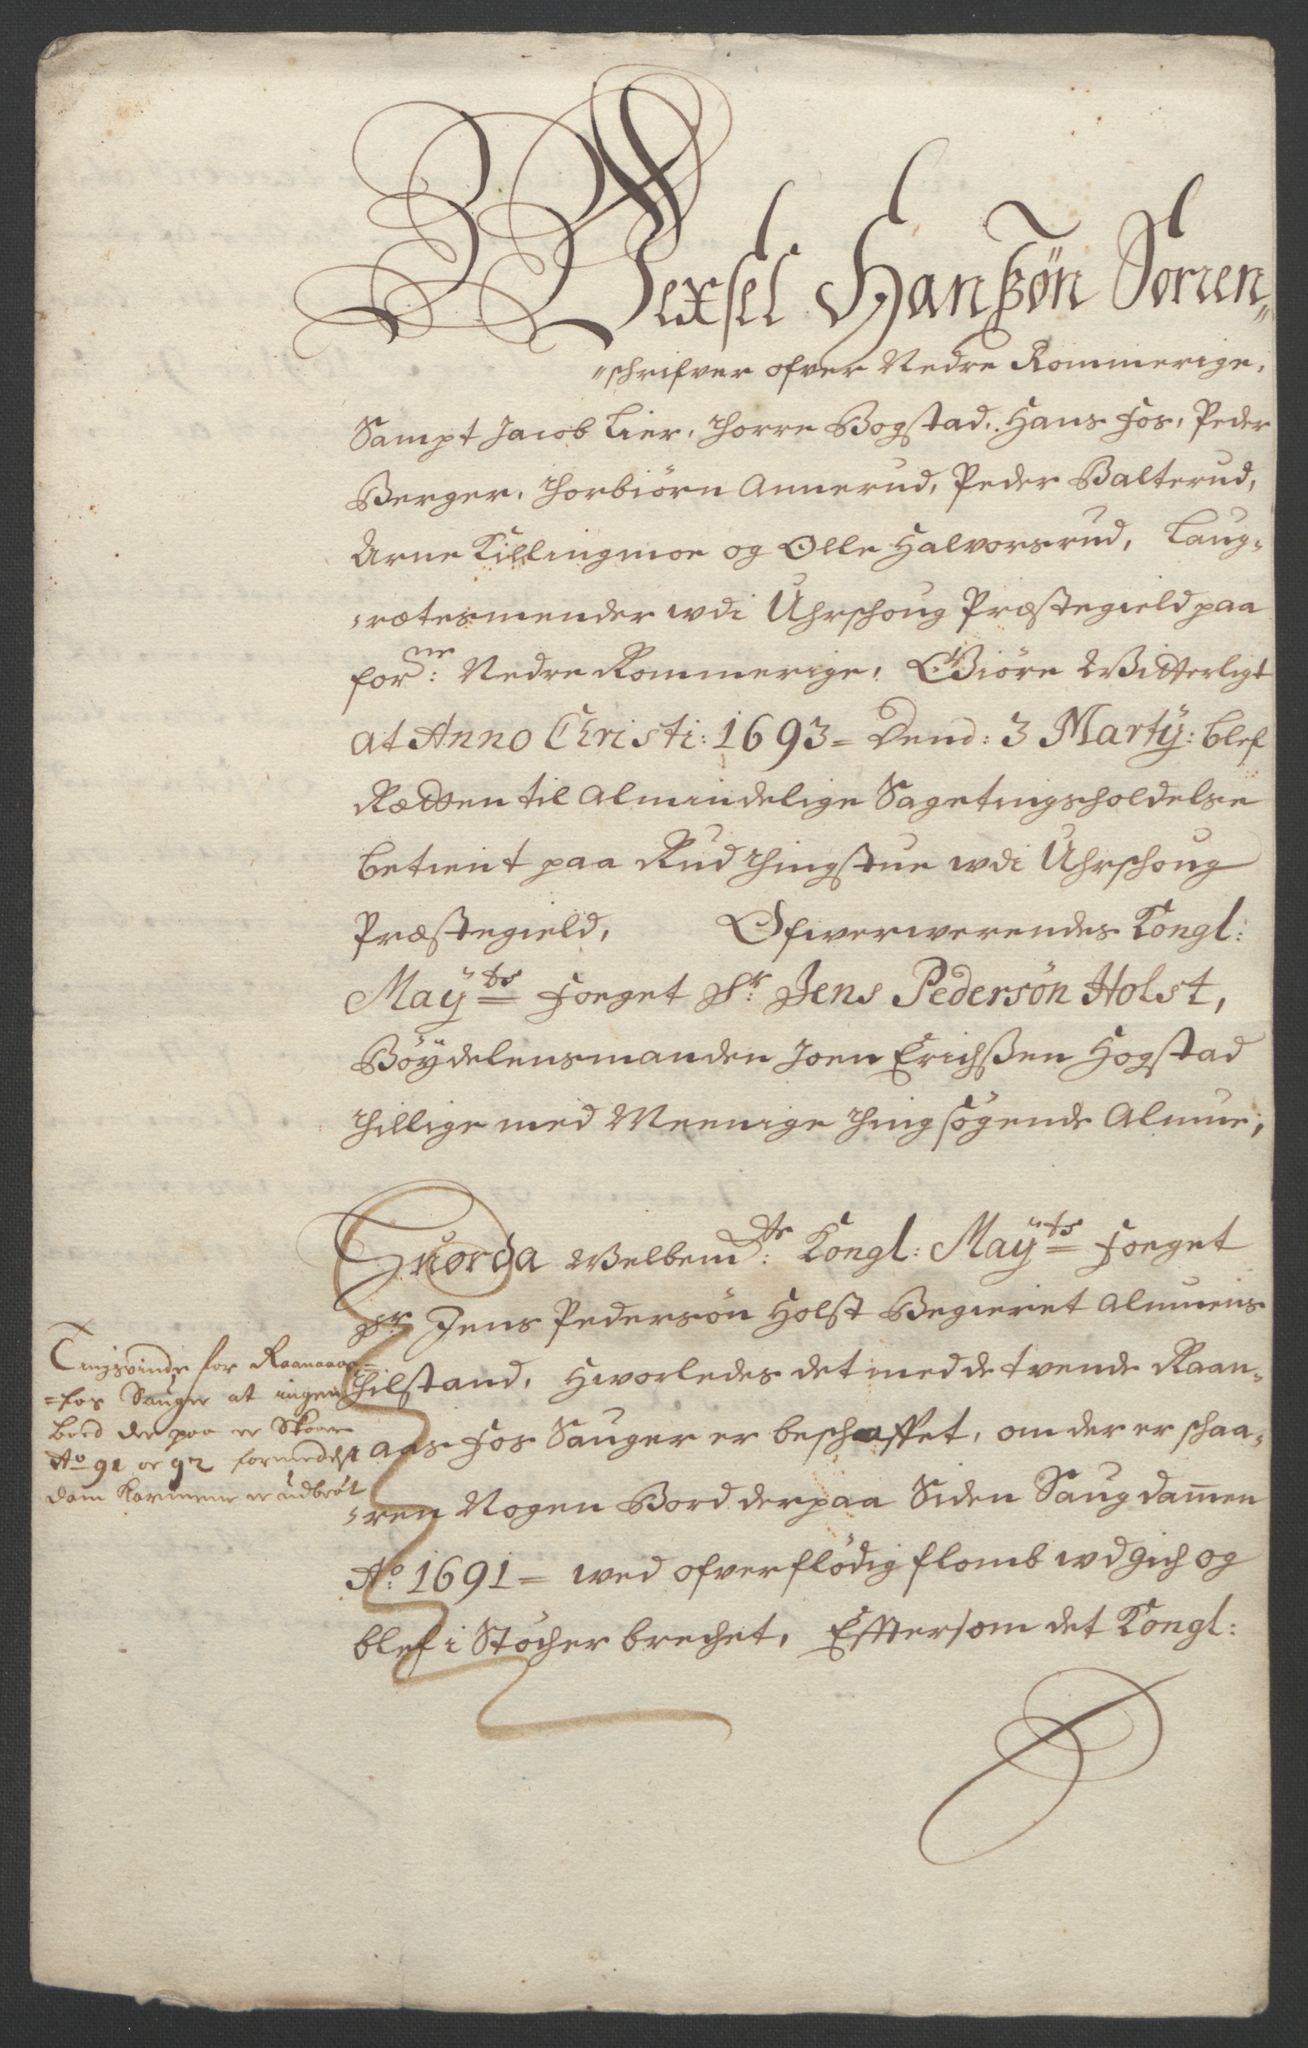 Wexsel Hanßøn Soren„
„schrifver ofver Nedre Rommerige,
Sampt Jacob Lier, Thorre Bogstad, Hans Fos, Peder
Berger, Thorbiørn Annerud, Peder Balterud,
Arne Killingmoe og Olle Halvorsrud, Laug-
-rætesmender wdi Uhrschoug Præstegield paa
forne: Nedre Rommerige, Giøre Witterligt
at Anno Christi: 1693 = Dend: 3 Martÿ: blef
Rætten til Almindelige Sagetingsholdelse
betient paa Rud Thingstue wdi Uhrschoug
Præstegield, Ofwerwerendes Kongl:
Maÿts Foeget Sr: Jens Pedersøn Holst,
Bøÿdelensmanden Joen Erichßen Hogstad
Thillige med Meenige Thingsøgende Almue,
Huorda Welbemte: Kongl: Maÿts Foeget
Sr Jens Pedersøn Holst Begieret Almuens
Thilstand, Hworledes det med de tvende Raan-
aas Fos Sauger er beschaffet, om der er schaa-
-ren Nogen Bord derpaa Siden Saugdammen
Ao: 1691 = wed ofverflødig flomb wdgich og
blef i Støcher brechet, Efftersom det Kongl:
Tingsvinde for Raanaaas=
=fos Sauger at ingen
bord der paa er Skaaren
Ao 91 oc 92 formedelst
dam Karmene er udbrøt